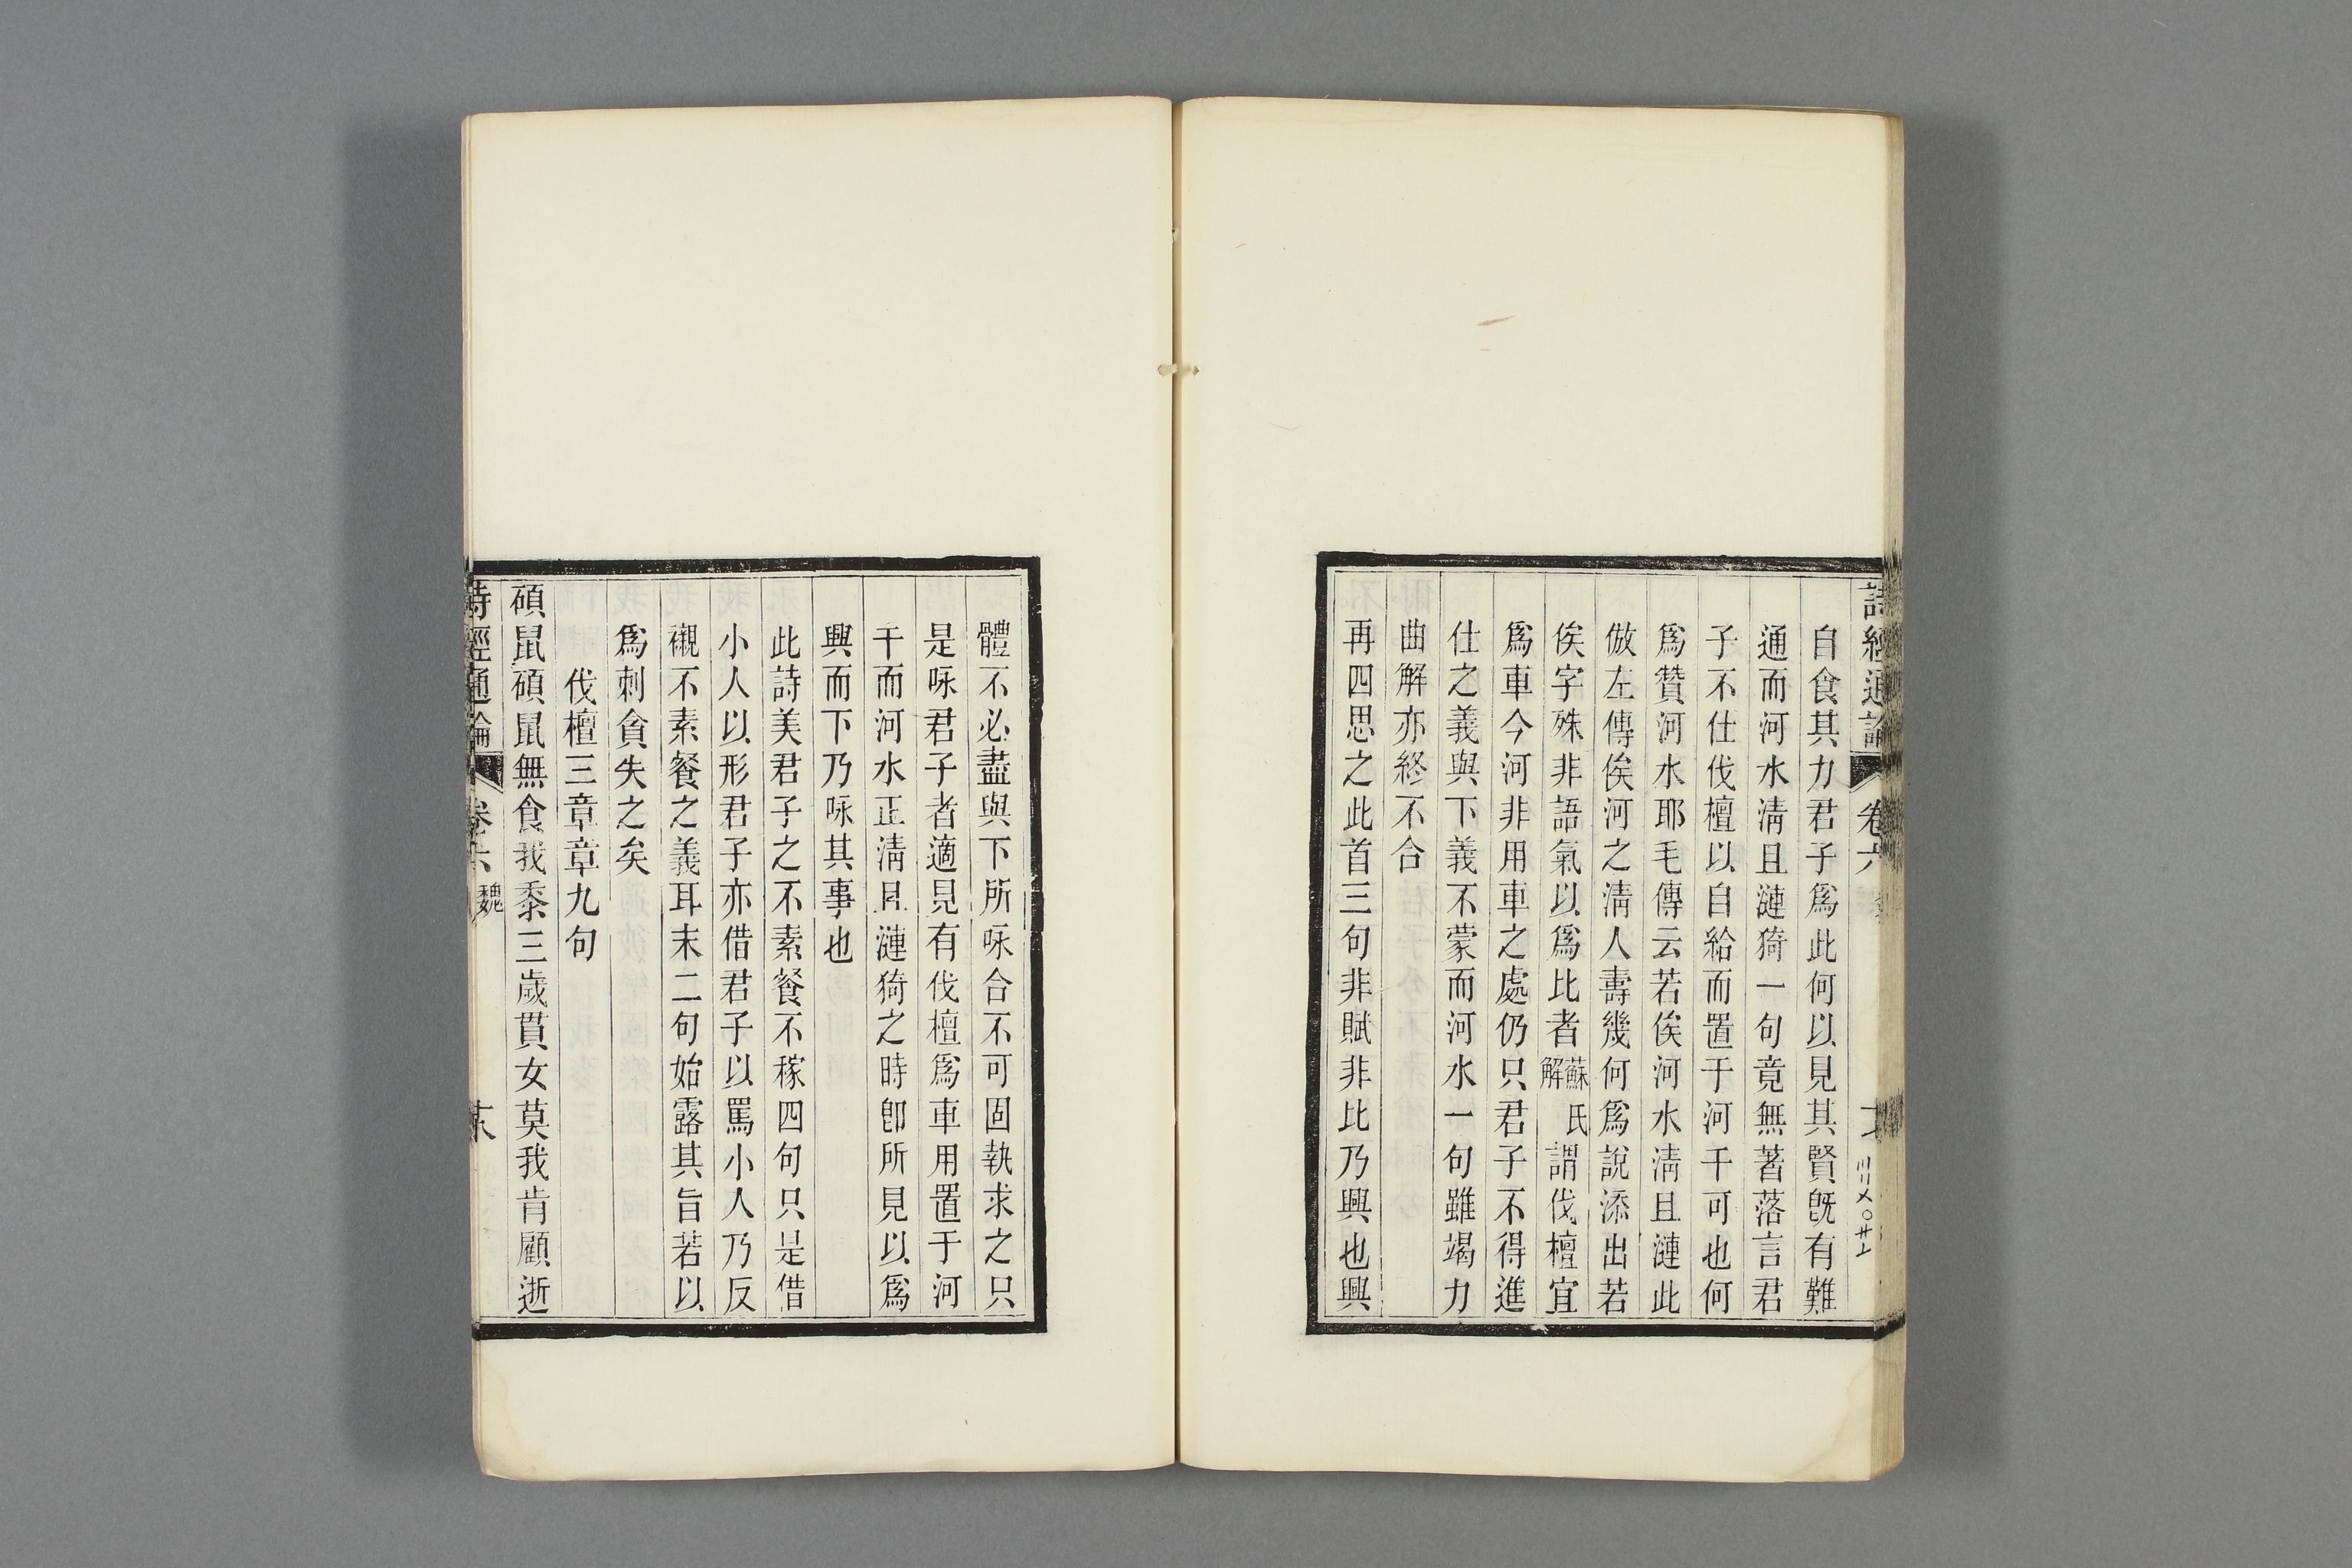 詩經通論 卷六
自食其力君子爲此何以見其賢旣有難
通而河水清且漣猗一句竟無著落言君
子不仕伐檀以自給而置于河干可也何
爲贊河水耶毛傳云若俟河水清且漣此
倣左傳俟河之清人壽幾何爲說添出若
俟字殊非語氣以爲比者蘇氏解謂伐檀宜
爲車今河非用車之處仍只君子不得進
仕之義與下義不蒙而河水一句雖竭力
曲解亦終不合
再四思之此首三句非賦非比乃興也興
體不必盡與下所咏合不可固執求之只
是咏君子者適見有伐檀爲車用置于河
干而河水正清且漣猗之時卽所見以爲
興而下乃咏其事也
此詩美君子之不素餐不稼四句只是借
小人以形君子亦借君子以罵小人乃反
襯不素餐之義耳末二句始露其旨若以
爲刺貪失之矣
伐檀三章章九句
碩鼠碩鼠無食我黍三歲貫女莫我肯顧逝
詩經通論 卷六 魏